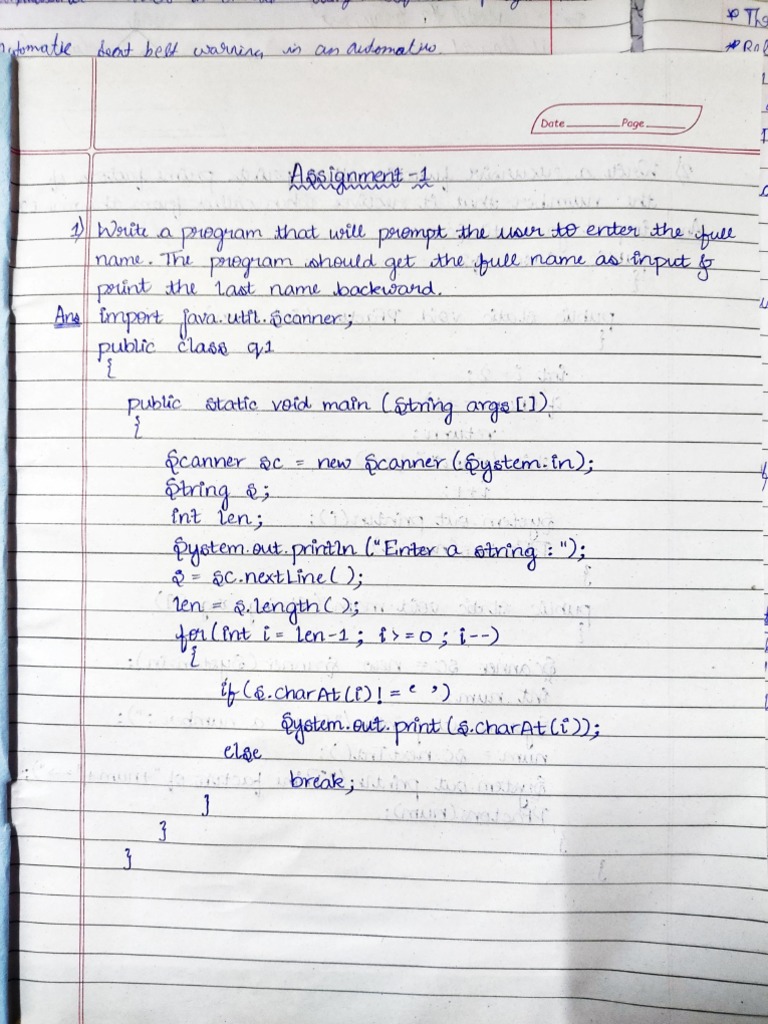 seat belt warning in an automatic
* The
Date Page
Assignment-1
1) Write a program that will prompt the user to enter the full
name. The program should get the full name as input &
print the last name backward.
Ans import java.util.Scanner;
public class q1
{
public static void main (String args[])
{
Scanner sc = new Scanner(System.in);
String s;
int len;
System.out.println ("Enter a string : ");
s = sc.nextLine( );
len = s.length( );
for(int i = len-1 ; i>=0 ; i--)
{
if (s.charAt(i) != ' ')
System.out.print (s.charAt(i));
else
break;
}
}
}